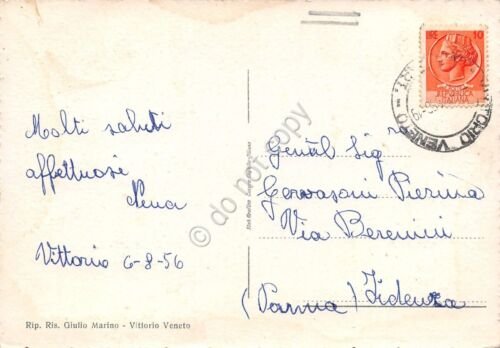 Molti saluti
affettuosi
Nena
Vittorio 6-8-56
Rip. Ris. Giulio Marino - Vittorio Veneto
LIRE 10
REPUBBLICA
ITALIANA
VITTORIO VENETO
Gentil Sig ra
Gervasoni Pierina
Via Berenini
(Parma) Fidenza
do not copy